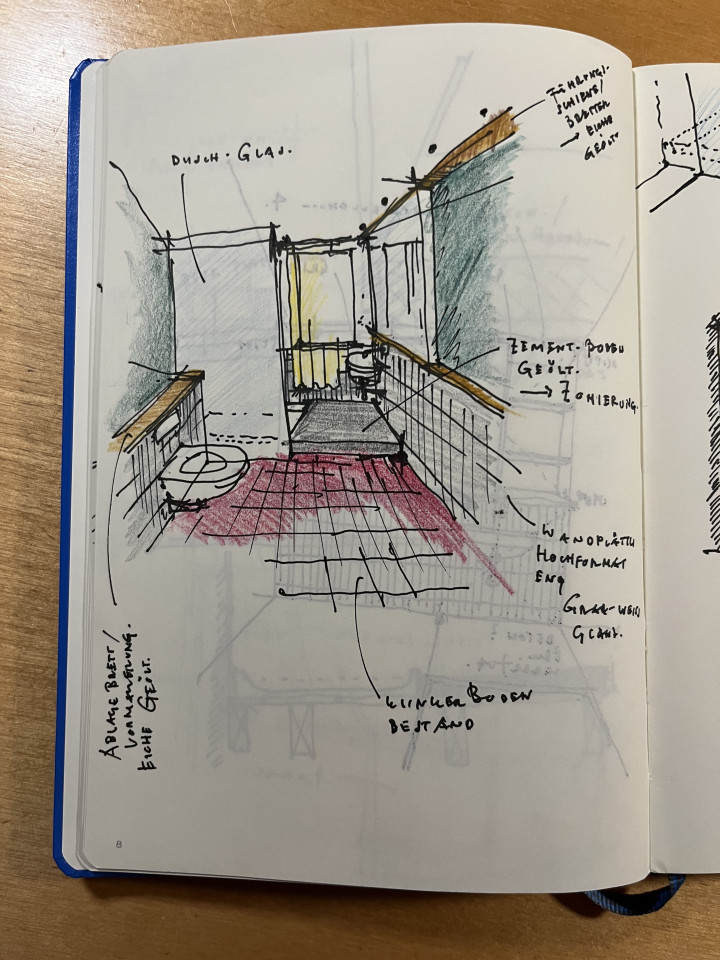 DUSCH-GLAS.
FÜHRUNGS-
SCHIENE/
BRETTER
→ EICHE
GEÖLT.
ZEMENT-BODEN
GEÖLT.
→ ZONIERUNG.
WANDPLÄTTLI
HOCHFORMAT
ENG
GRAU-WEISS
GLANZ.
KLINKERBODEN
BESTAND
ABLAGE BRETT/
VORMAUERUNG.
EICHE GEÖLT.
8